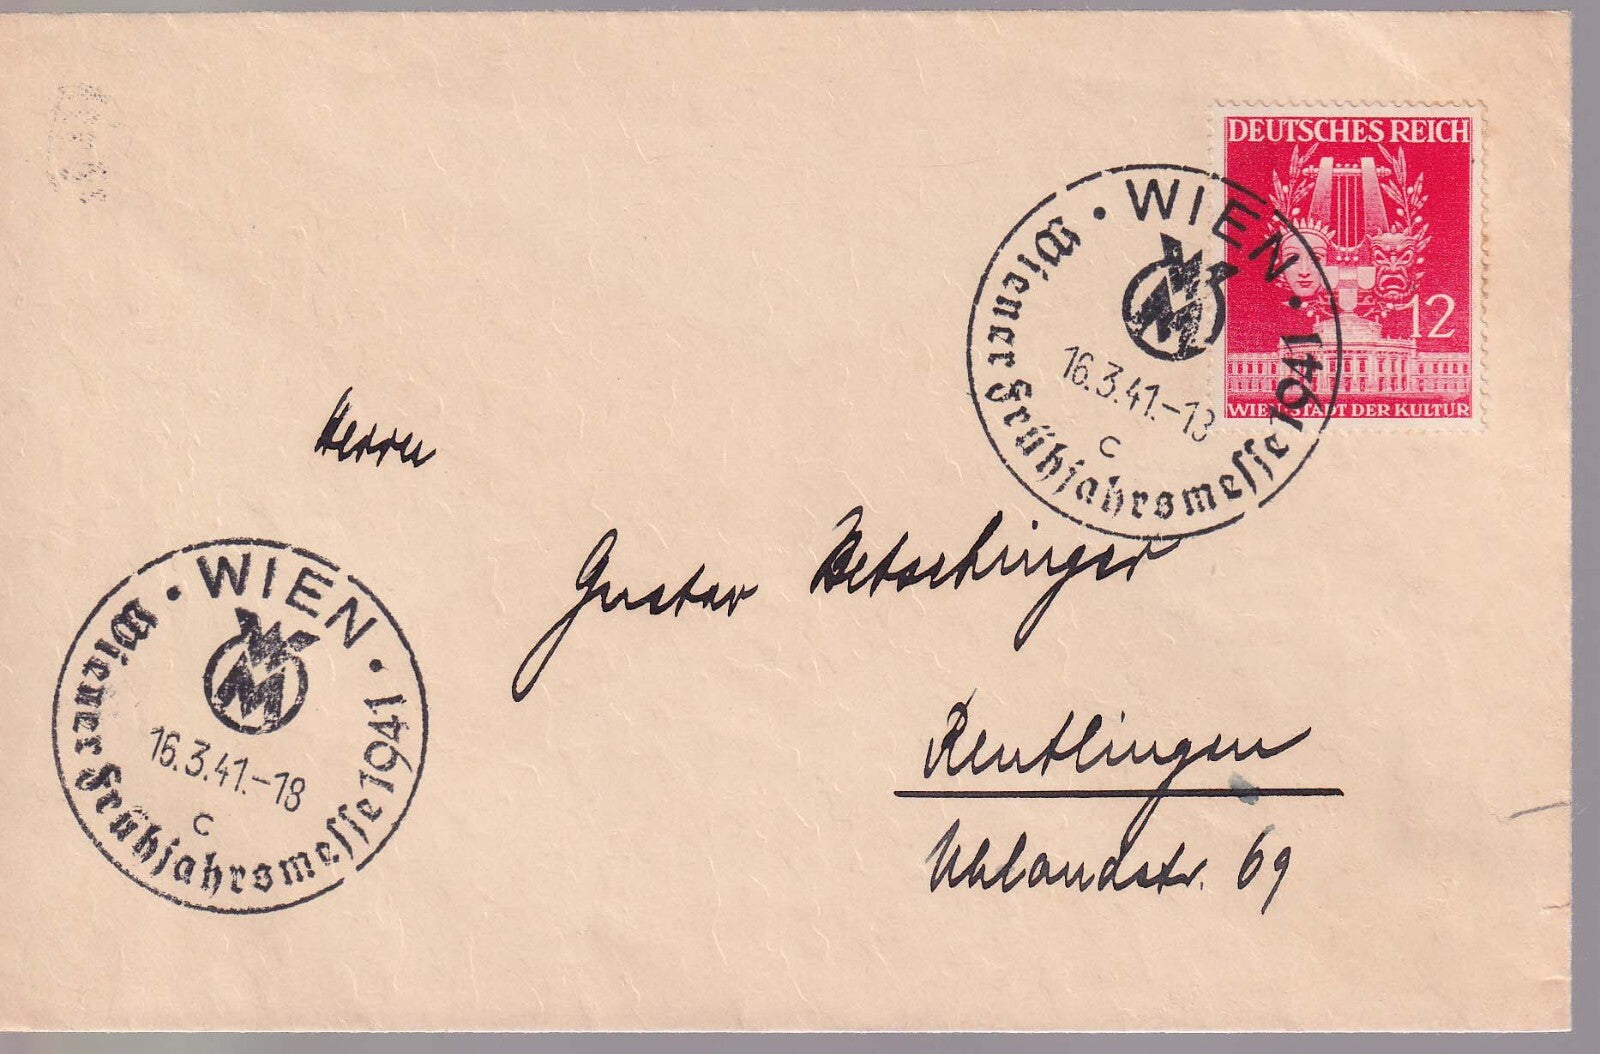 DEUTSCHES REICH
12
WIEN STADT DER KULTUR
WIEN
WM
16.3.41.-18
c
Wiener Frühjahrsmesse 1941
Herrn
Gustav Betschinger
Reutlingen
Uhlandstr. 69
WIEN
WM
16.3.41.-18
c
Wiener Frühjahrsmesse 1941